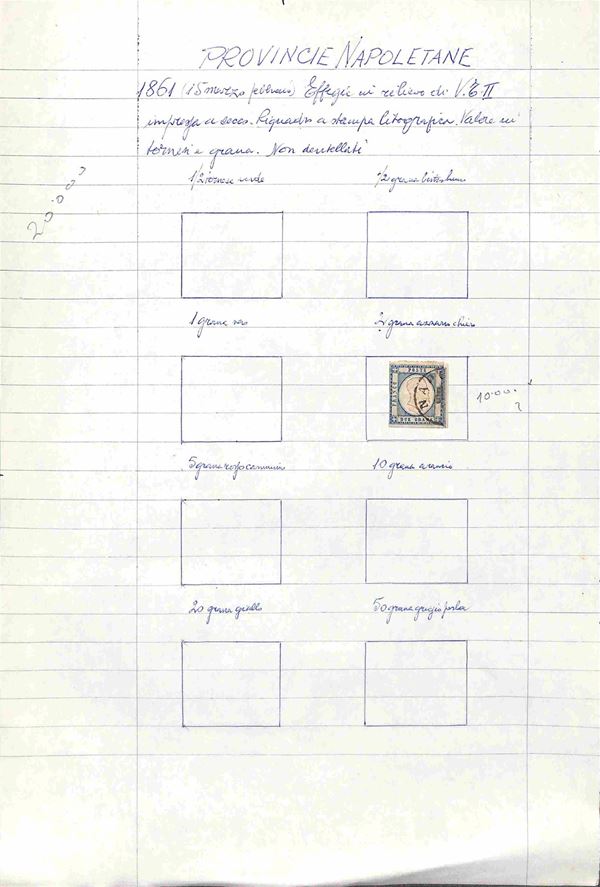 PROVINCIE NAPOLETANE
1861 (15 marzo febbraio) Effigie in rilievo di V.E II
impressa a secco. Riquadro a stampa litografica. Valore in
tornesi e grana. Non dentellati
20.000?
1/2 tornese verde
1/2 grana bistro bruno
1 grana nero
2 grana azzurro chiaro
FRANCO
POSTE
DUE GRANA
10.00.
?
5 grana rosso carminio
10 grana arancio
20 grana giallo
50 grana grigio perla